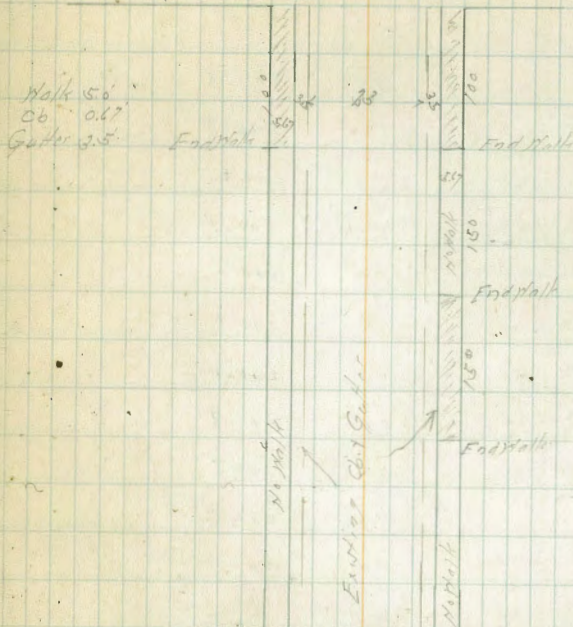 Walk 5.0
Cb 0.67
Gutter 3.5
100
5.67
End Walk
100
End Walk
5.67
No Walk
150
End Walk
150
End Walk
No Walk
Existing Cb & Gutter
No Walk